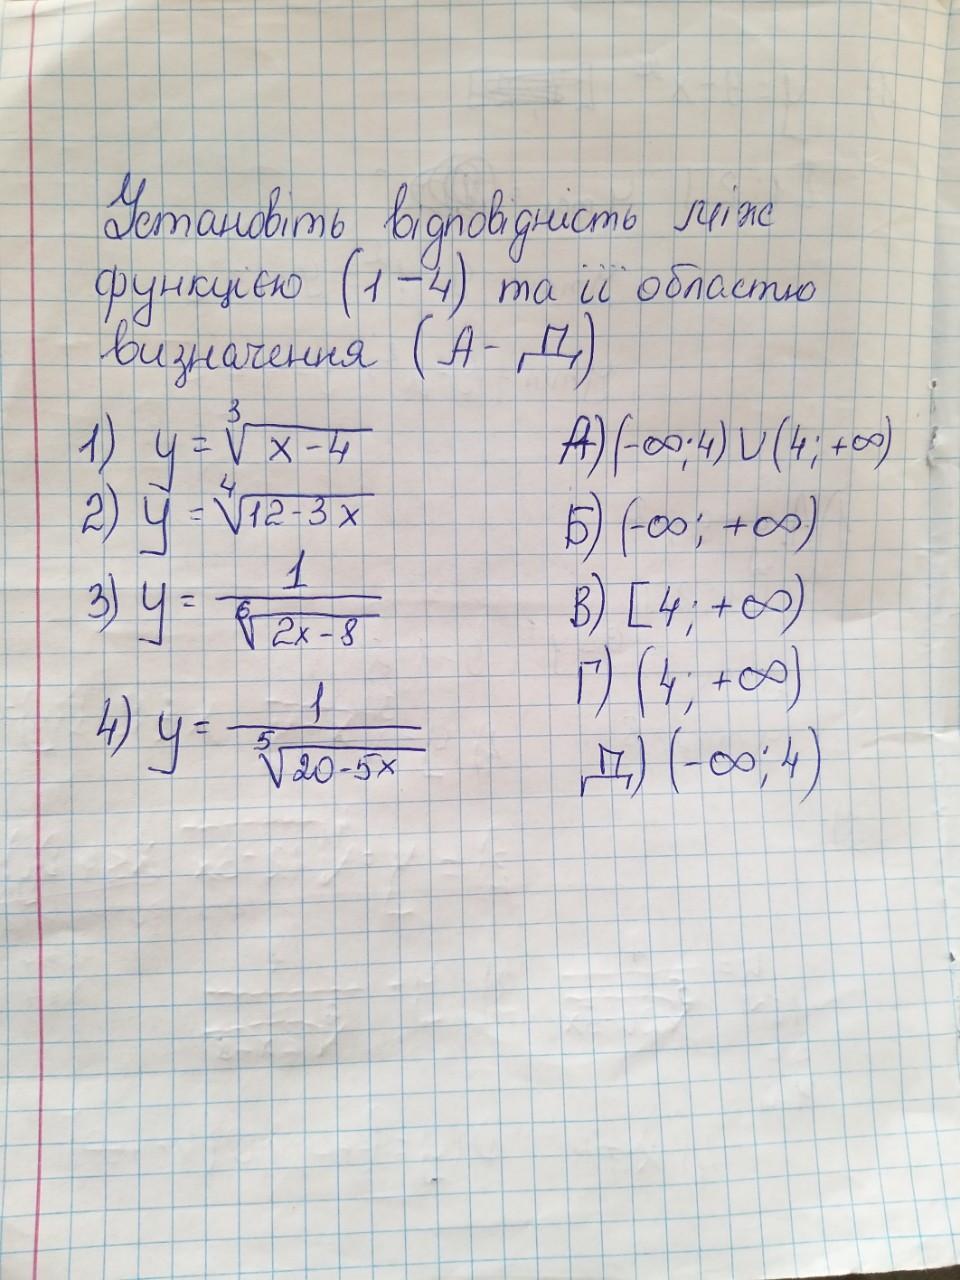 Установіть відповідність між
функцією (1-4) та її областю
визначення (А - Д)
1) y = ∛(x-4) А) (-∞; 4) ∪ (4; +∞)
2) y = ∜(12-3x) Б) (-∞; +∞)
3) y = 1/⁶√(2x-8) В) [4; +∞)
Г) (4; +∞)
4) y = 1/⁵√(20-5x) Д) (-∞; 4)